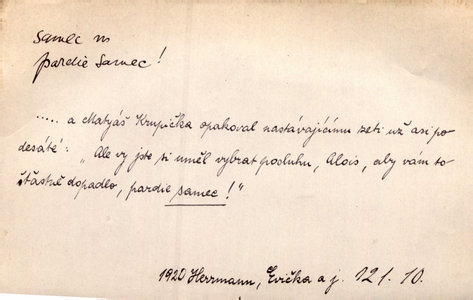 samec m
pardie samec!
..... a Matyáš Krupička opakoval nastávajícímu zeti už asi po
desáté: „Ale vy jste si uměl vybrat posluhu, Alois, aby vam to
šťastně dopadlo, pardie samec!"
1920 Herrmann, Evička a j. 121. 10.